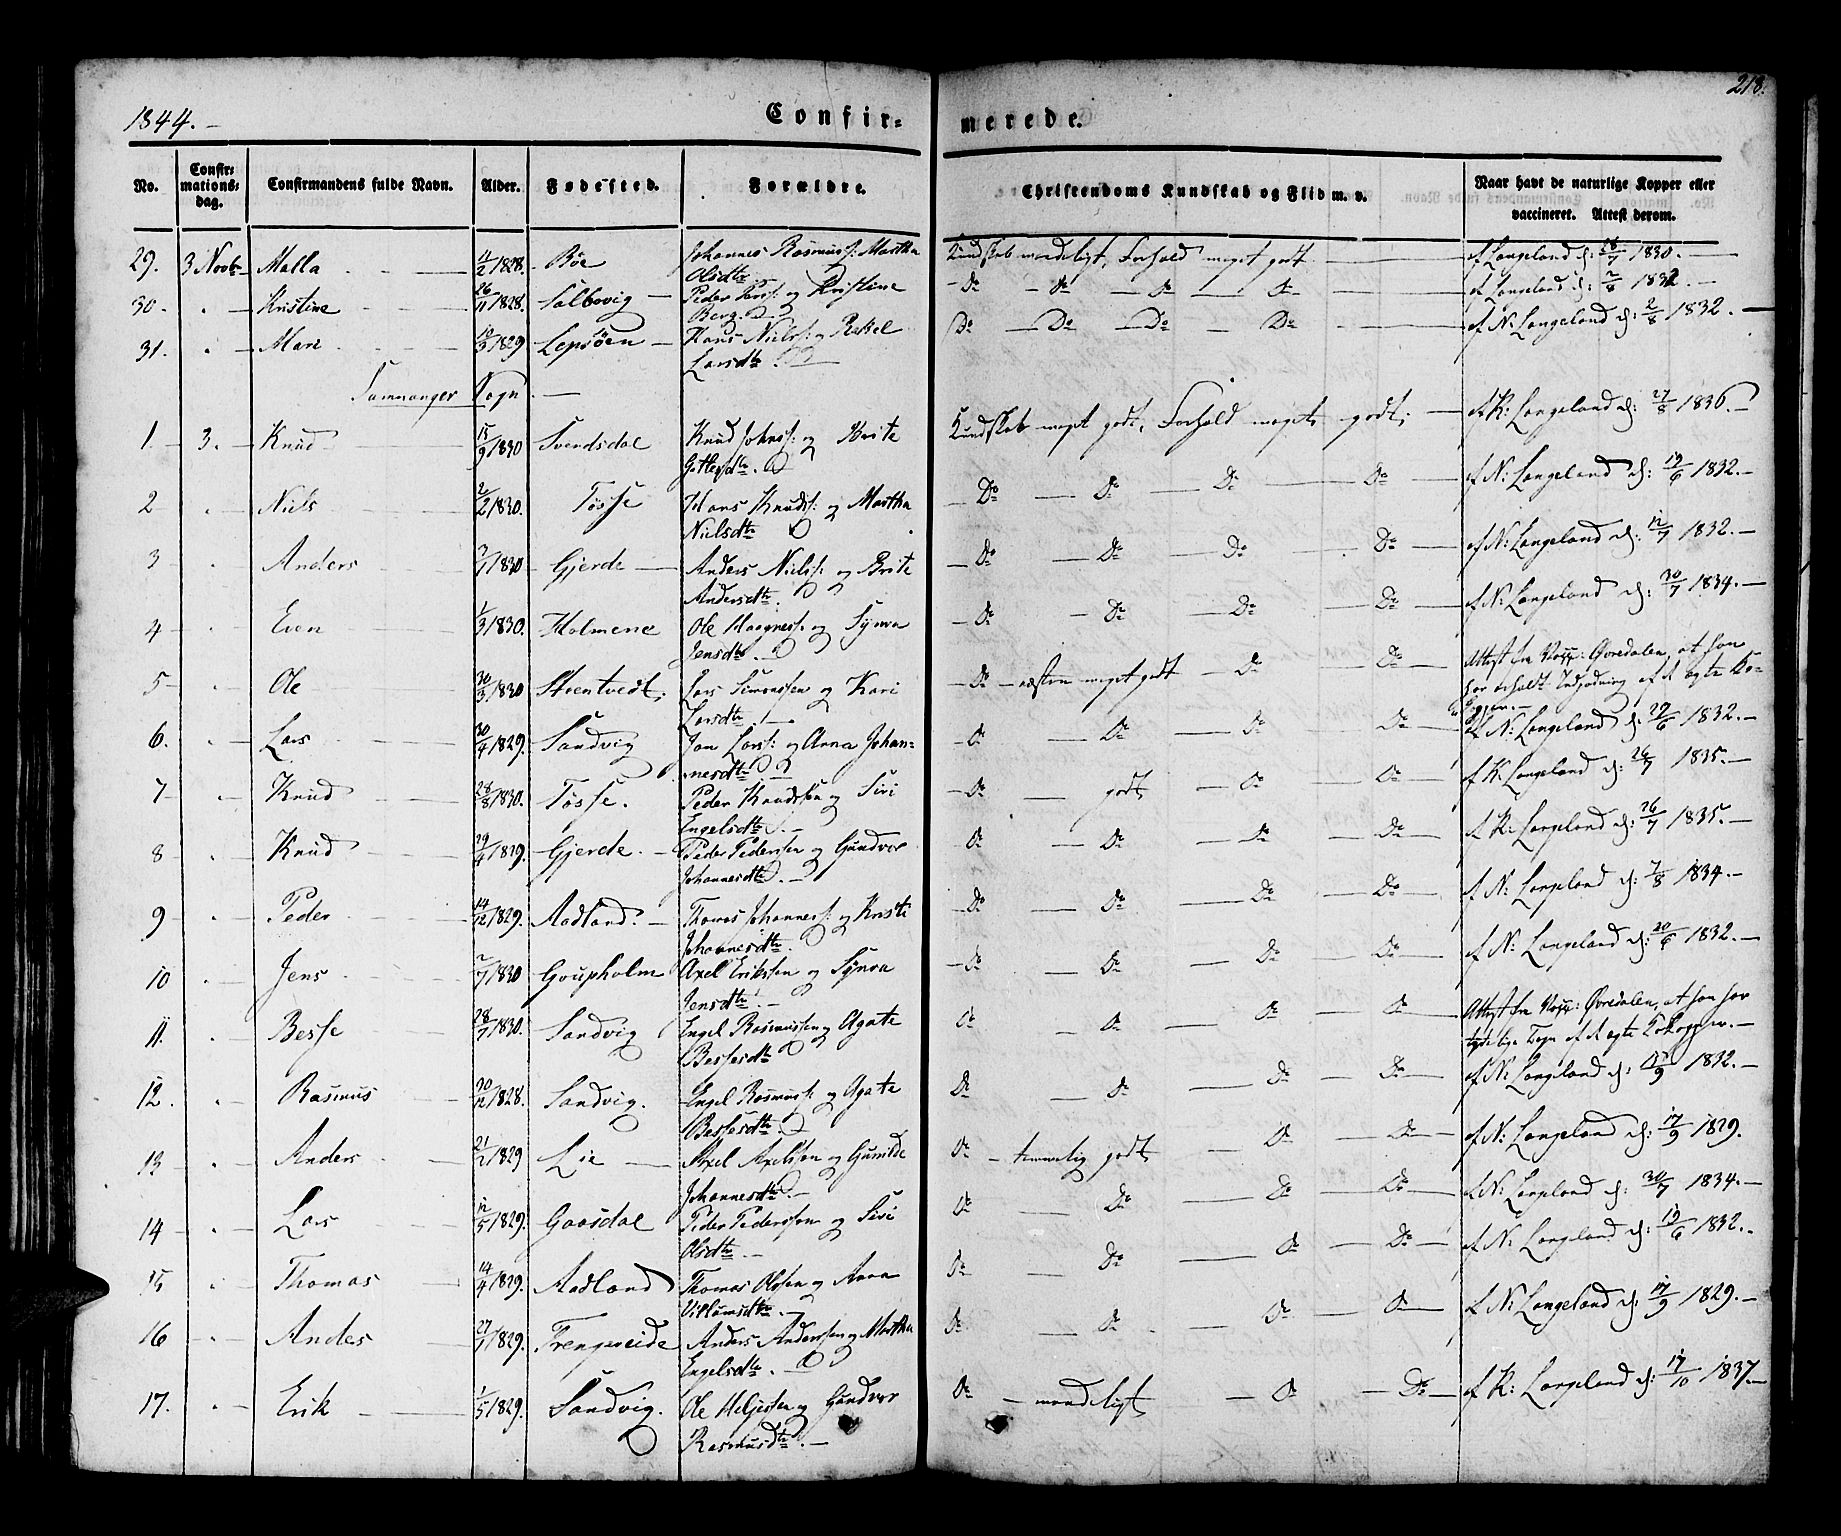 1844.-
Confir= merede.
218.
No. Confir= mations= dag. Confirmandens fulde Navn. Alder. Fødested. Forældre. Christendoms Kundskab og Flid m. v. Naar havt de naturlige Kopper eller vaccineret. Attest derom.
29. 3 Novbr Malla 1/2 1828. Bøe Johannes Rasmuss: Martha Kundskab maadeligt, Forhold meget godt af Langeland d: 18/7 1830.
Olsdtr
30. Kristine 26/11 1828. Solbovig Peder Pers: og Kristine Do Do Do Do af Langeland d: 2/8 1832.
Berg
31. Mari 10/3 1829 Lepsøen Hans Niels: og Rakel Do Do Do Do af N: Langeland d: 2/8 1832.
Larsdtr
Samnanger Sogn
1. 3. Knud 15/9 1830 Svendsdal Knud Johns: og Brite Kundskab meget godt, Forhold meget godt; af K: Langeland d: 27/8 1836.
Gitlesdtr.
2 Niels 2/2 1830. Tøsse Hans Knuds: og Martha Do Do Do Do af N: Langeland d: 19/6 1832.
Nielsdtr
3 Anders 2/7 1830 Gjerde Anders Niels: og Brite Do Do Do Do af N: Langeland d: 12/7 1832.
Andersdtr.
4 Even 1/3 1830. Holmene Ole Haagness: og Synva Do Do Do Do af N: Langeland d: 30/7 1834.
Jensdtr.
5 Ole 30/3 1830 Strentvedt; Lars Simonssen og Kari Do næsten meget godt Do Do Attest fra Øvredalen, at han
Larsdtr har erholdt Indpodning af d ægte Ko=
kopper.
6. Lars 30/4 1829. Sandvig Jon Lars: og Anna Johan= Do Do Do Do af N: Langeland d: 29/6 1832.
nesdtr
7 Knud 28/8 1830. Tøsse. Peder Knudssen og Siri Do godt Do Do af K: Langeland d: 26/7 1835.
Engelsdtr.
8 Knud 29/4 1829. Gjerde. Peder Pedersen og Gundvor Do Do Do Do af K: Langeland d: 26/7 1835.
Johannesdtr.
9 Peder 14/12 1829. Aadland. Thomas Johanness: og Kristi Do Do Do Do af N: Langeland d: 7/8 1834.
Johannesdtr.
10 Jens 2/7 1830 Goupholm Axel Erikssen og Synva Do Do Do Do af N: Langeland d: 20/6 1832.
Jensdtr.
11. Besse 28/7 1830. Sandvig Engel Rasmussen og Agate Do Do Do Do Attest fra Øvredalen, at han har
Bessesdtr tydelige Tegn af d ægte Kokopper.
12. Rasmus 30/12 1828. Sandvig. Engel Rasmus: og Agate Do Do Do Do af N: Langeland d: 1832.
Bessesdtr.
13 Anders 21/2 1829 Lie Axel Axelssen og Gunilde Do temmelig godt Do Do af N: Langeland d: 17/9 1829.
Johannesdtr.
14 Lars 12/5 1829. Gaasdal Peder Pederssen og Siri Do Do Do Do af N: Langeland d: 30/7 1834.
Olsdtr.
15 Thomas 14/4 1829. Aadland Thomas Olssen og Anna Do Do Do Do af N: Langeland d: 19/6 1832.
Villumsdtr.
16 Andes 27/1 1829. Trengereide Anders Anderssen og Martha Do Do Do Do af N: Langeland d: 17/9 1829.
Engelsdtr.
17. Erik 1/5 1829. Sandvig. Ole Helgesen og Gundvor Do maadeligt Do Do af K: Langeland d: 17/10 1837.
Rasmusdtr.